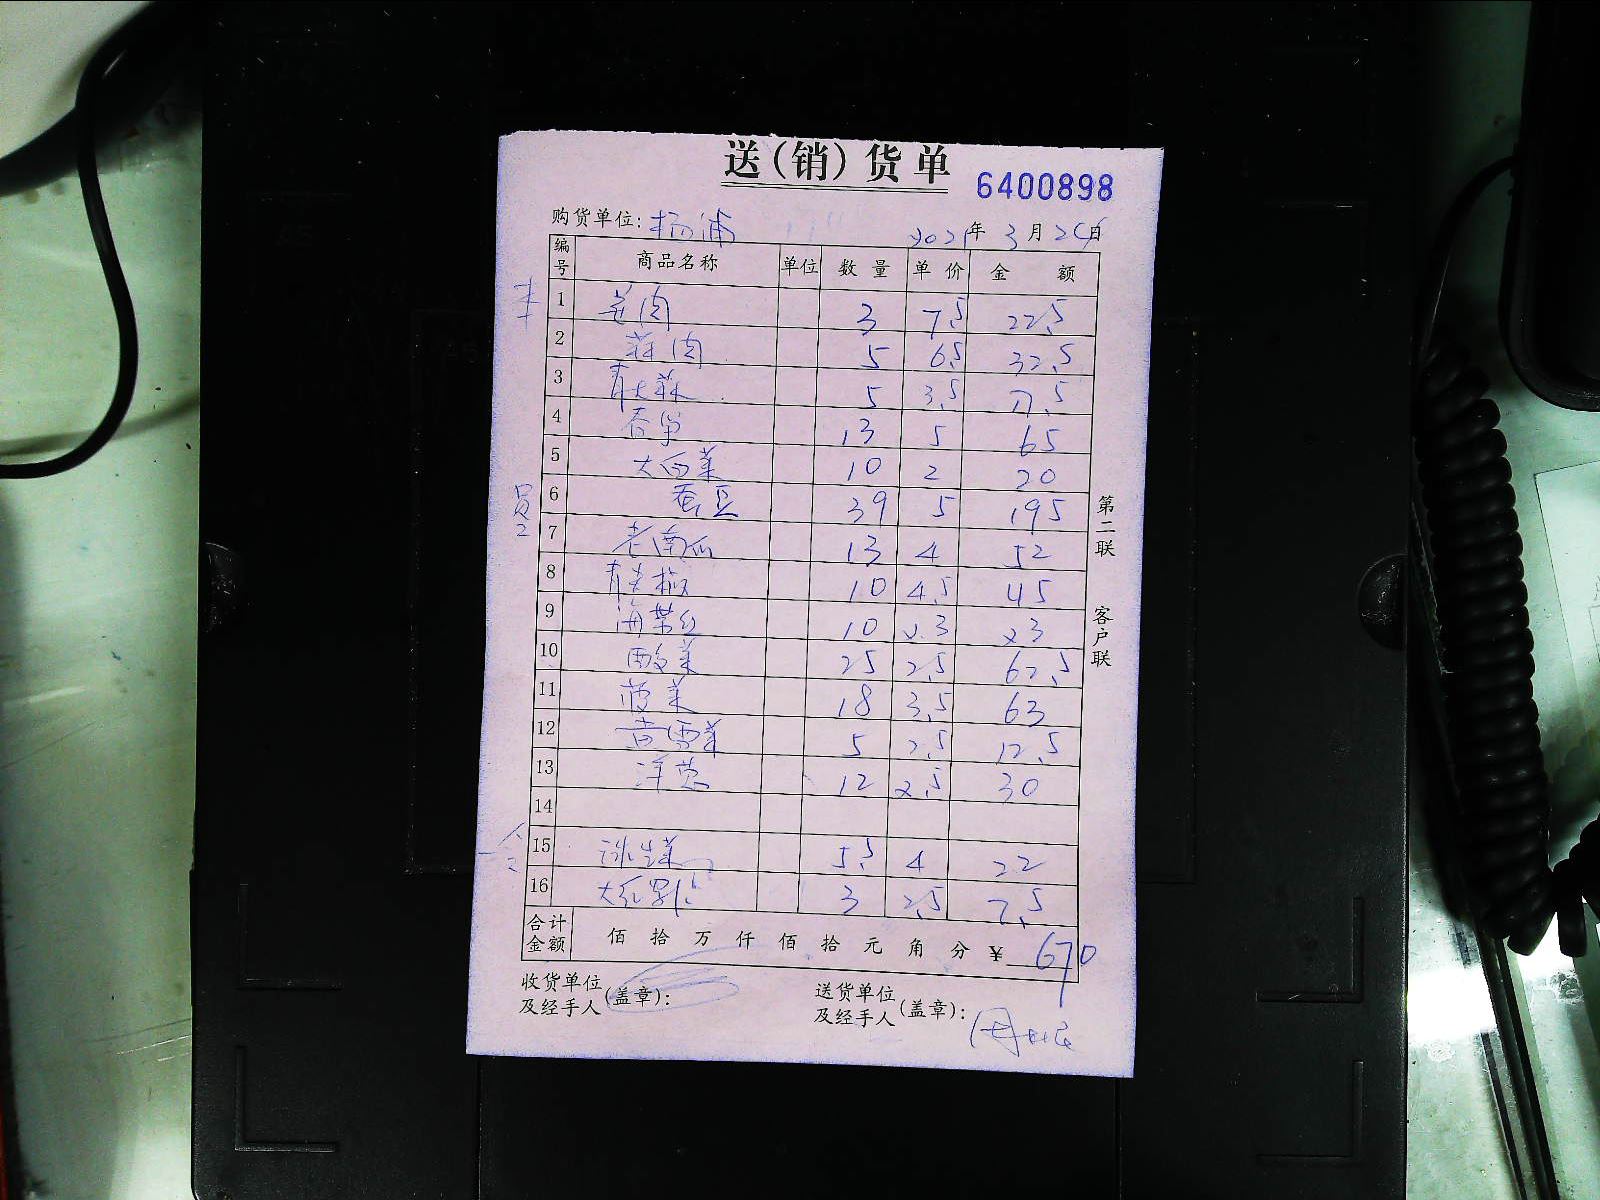 送(销)货单
6400898
购货单位: 杨浦 2021年3月26日
编号 商品名称 单位 数量 单价 金额
1 姜肉 3 7.5 22.5
2 蒜肉 5 6.5 32.5
3 青大蒜 5 3.5 17.5
4 13 5 65
5 大白菜 10 2 20
6 蚕豆 39 5 195
7 老南瓜 13 4 52
8 青尖椒 10 4.5 45
9 海带丝 10 2.3 23
10 酸菜 25 2.5 62.5
11 菠菜 18 3.5 63
12 5 2.5 12.5
13 洋葱 12 2.5 30
14
15 冰生菜 5.5 4 22
16 大红 3 2.5 7.5
合计金额 佰 拾 万 仟 佰 拾 元 角 分 ¥ 670
收货单位及经手人(盖章):
送货单位及经手人(盖章):
第二联 客户联